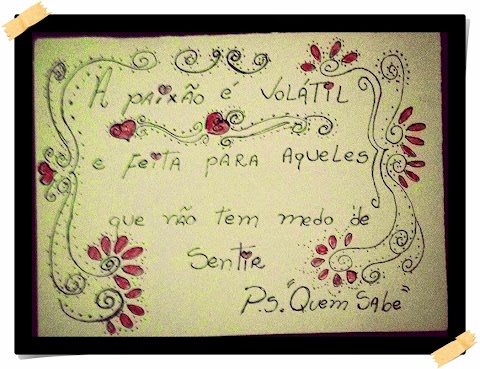 A paixão é VOLÁTIL
e feita para Aqueles
que não tem medo de
Sentir
P.S. "Quem Sabe"